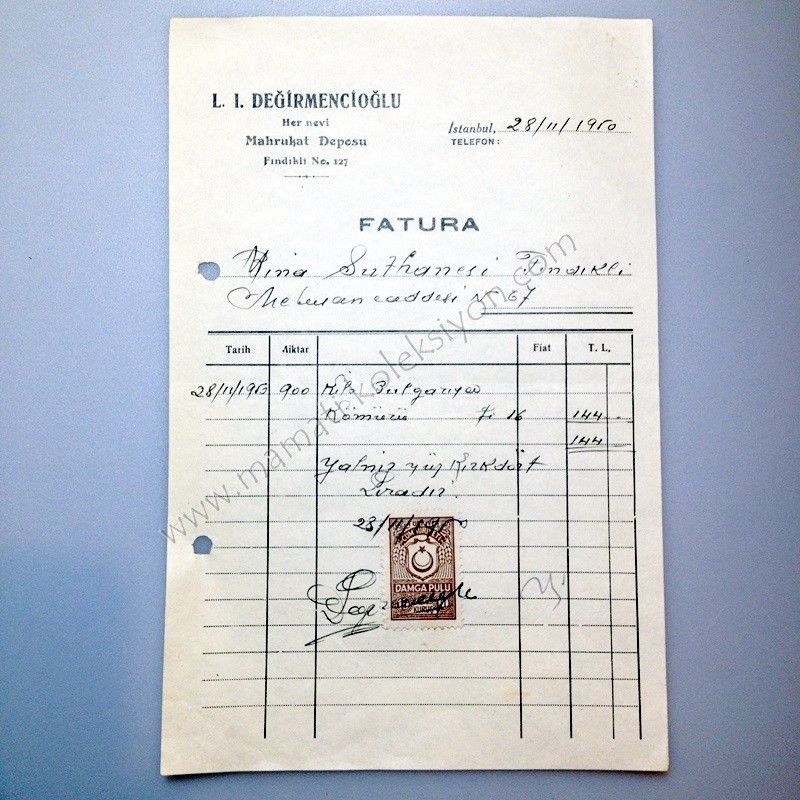 L. I. DEĞİRMENCİOĞLU
Her nevi
Mahrukat Deposu
Fındıklı No. 127
İstanbul, 28/11/1950
TELEFON:
FATURA
Süthanesi Fındıklı
caddesi No 67
Tarih Miktar Fiat T. L.
28/11/1950 900 Kilo Bulgarya
Kömürü Fi 16 144 -
144 -
Yalnız yüz Kırkdört
Liradır.
28/11/1950
DAMGA PULU
www.mamatkoleksiyon.com